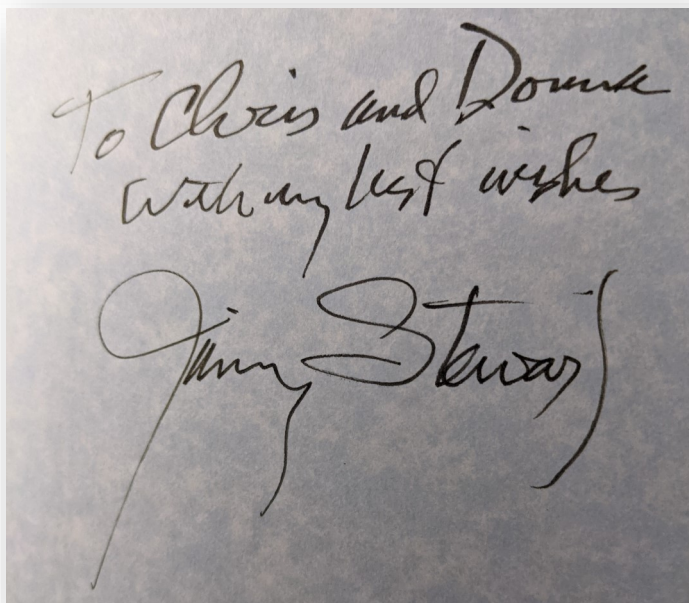 To Chris and Donna
With my best wishes
Jimmy Stewart